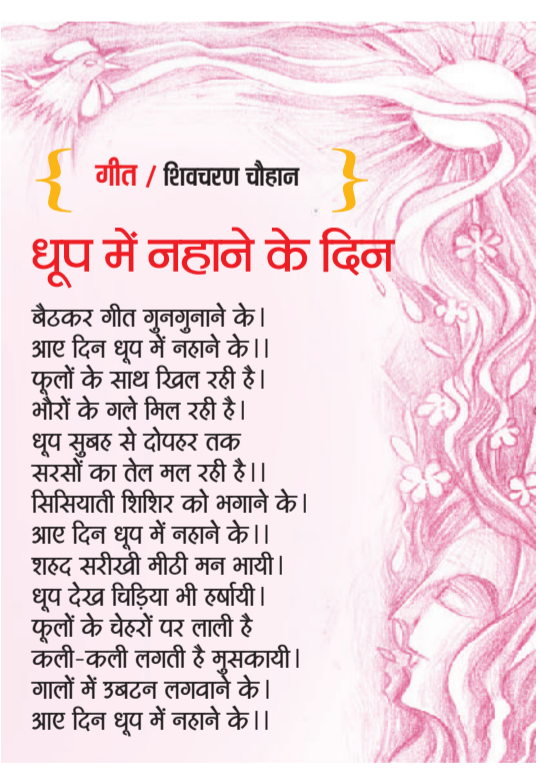 { गीत / शिवचरण चौहान }
धूप में नहाने के दिन
बैठकर गीत गुनगुनाने के।
आए दिन धूप में नहाने के।।
फूलों के साथ खिल रही है।
भौरों के गले मिल रही है।
धूप सुबह से दोपहर तक
सरसों का तेल मल रही है।।
सिसियाती शिशिर को भगाने के।
आए दिन धूप में नहाने के।।
शहद सरीखी मीठी मन भायी।
धूप देख चिड़िया भी हर्षायी।
फूलों के चेहरों पर लाली है
कली-कली लगती है मुसकायी।
गालों में उबटन लगवाने के।
आए दिन धूप में नहाने के।।